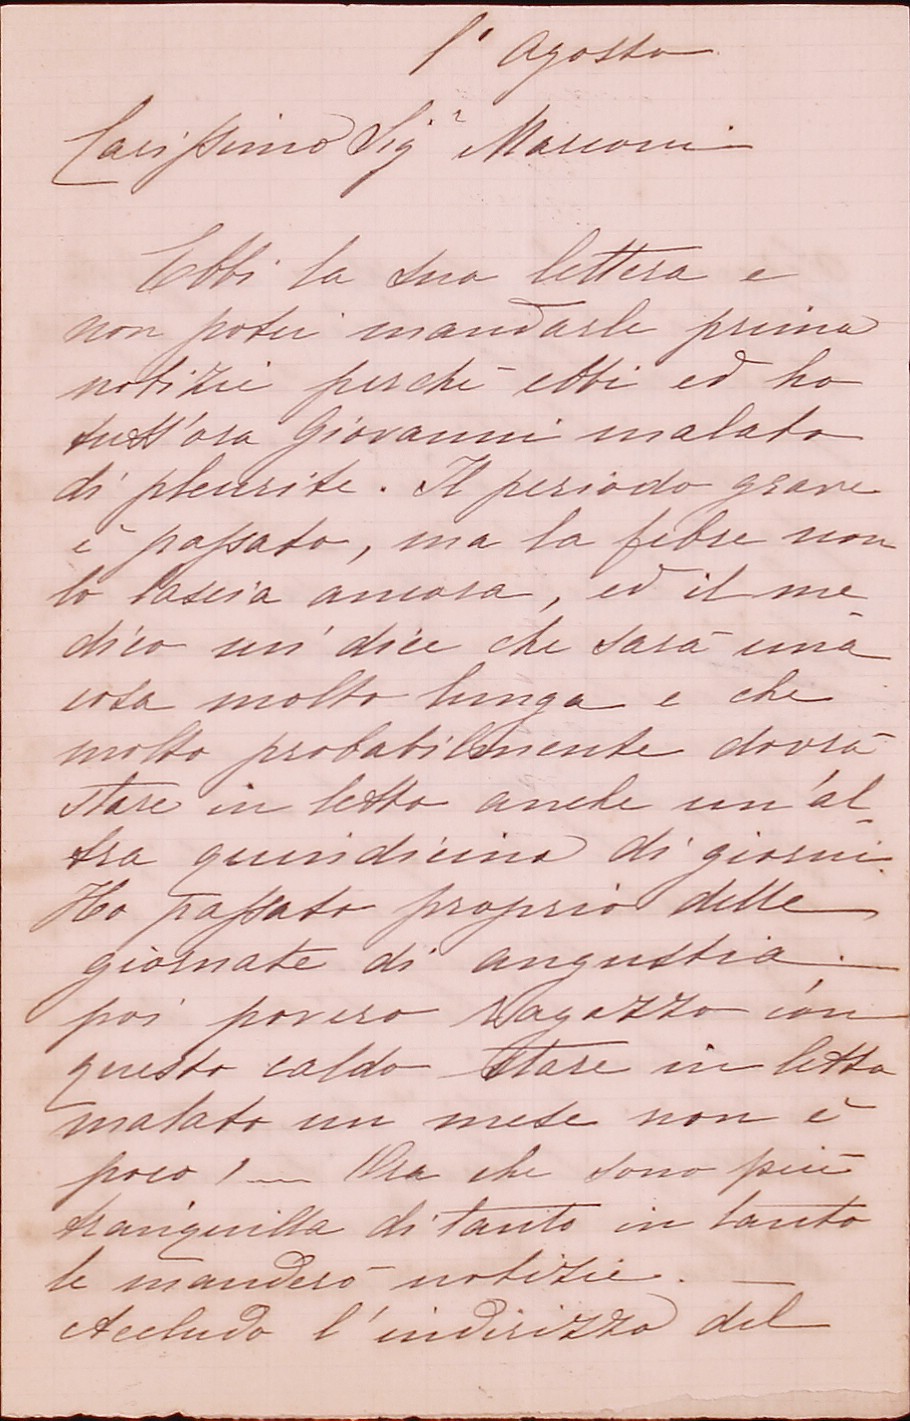 1° Agosto
Carissimo Sigr Marconi
Ebbi la sua lettera e
non potei mandarle prima
notizie perchè ebbi ed ho
tutt'ora Giovanni malato
di pleurite. Il periodo grave
è passato, ma la febre non
lo lascia ancora, ed il me-
dico mi dice che sarà una
cosa molto lunga e che
molto probabilmente dovrà
stare in letto anche un'al-
tra quindicina di giorni.
Ho passato proprio delle
giornate di angustia.
poi povero ragazzo con
questo caldo stare in letto
malato un mese non è
poco! — Ora che sono più
tranquilla di tanto in tanto
le manderò notizie. —
Accludo l'indirizzo del